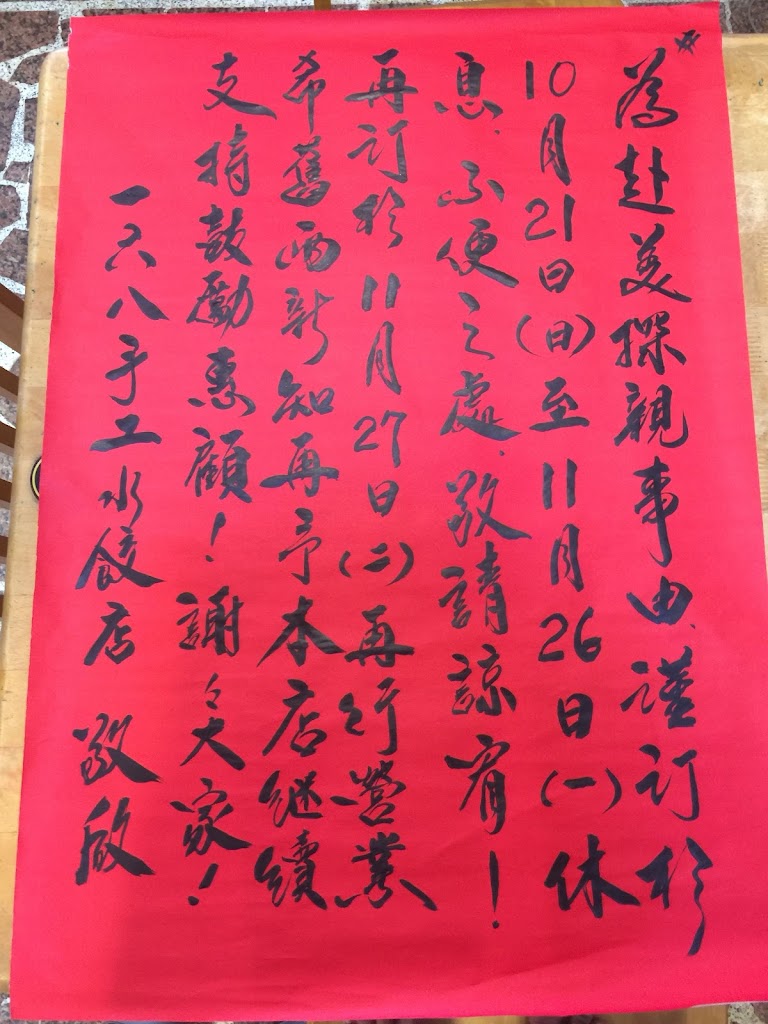 為赴美探親事由、謹訂於
10月21日(日)至11月26日(一)休
息、不便之處、敬請諒宥！
再訂於11月27日(二)再行營業
希舊雨新知再予本店継續
支持鼓勵惠顧！謝々大家！
一六八手工水餃店 敬啟